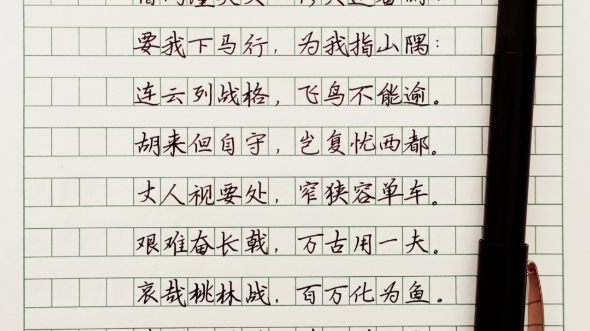 要我下马行，为我指山隅：
连云列战格，飞鸟不能逾。
胡来但自守，岂复忧西都。
丈人视要处，窄狭容单车。
艰难奋长戟，万古用一夫。
哀哉桃林战，百万化为鱼。